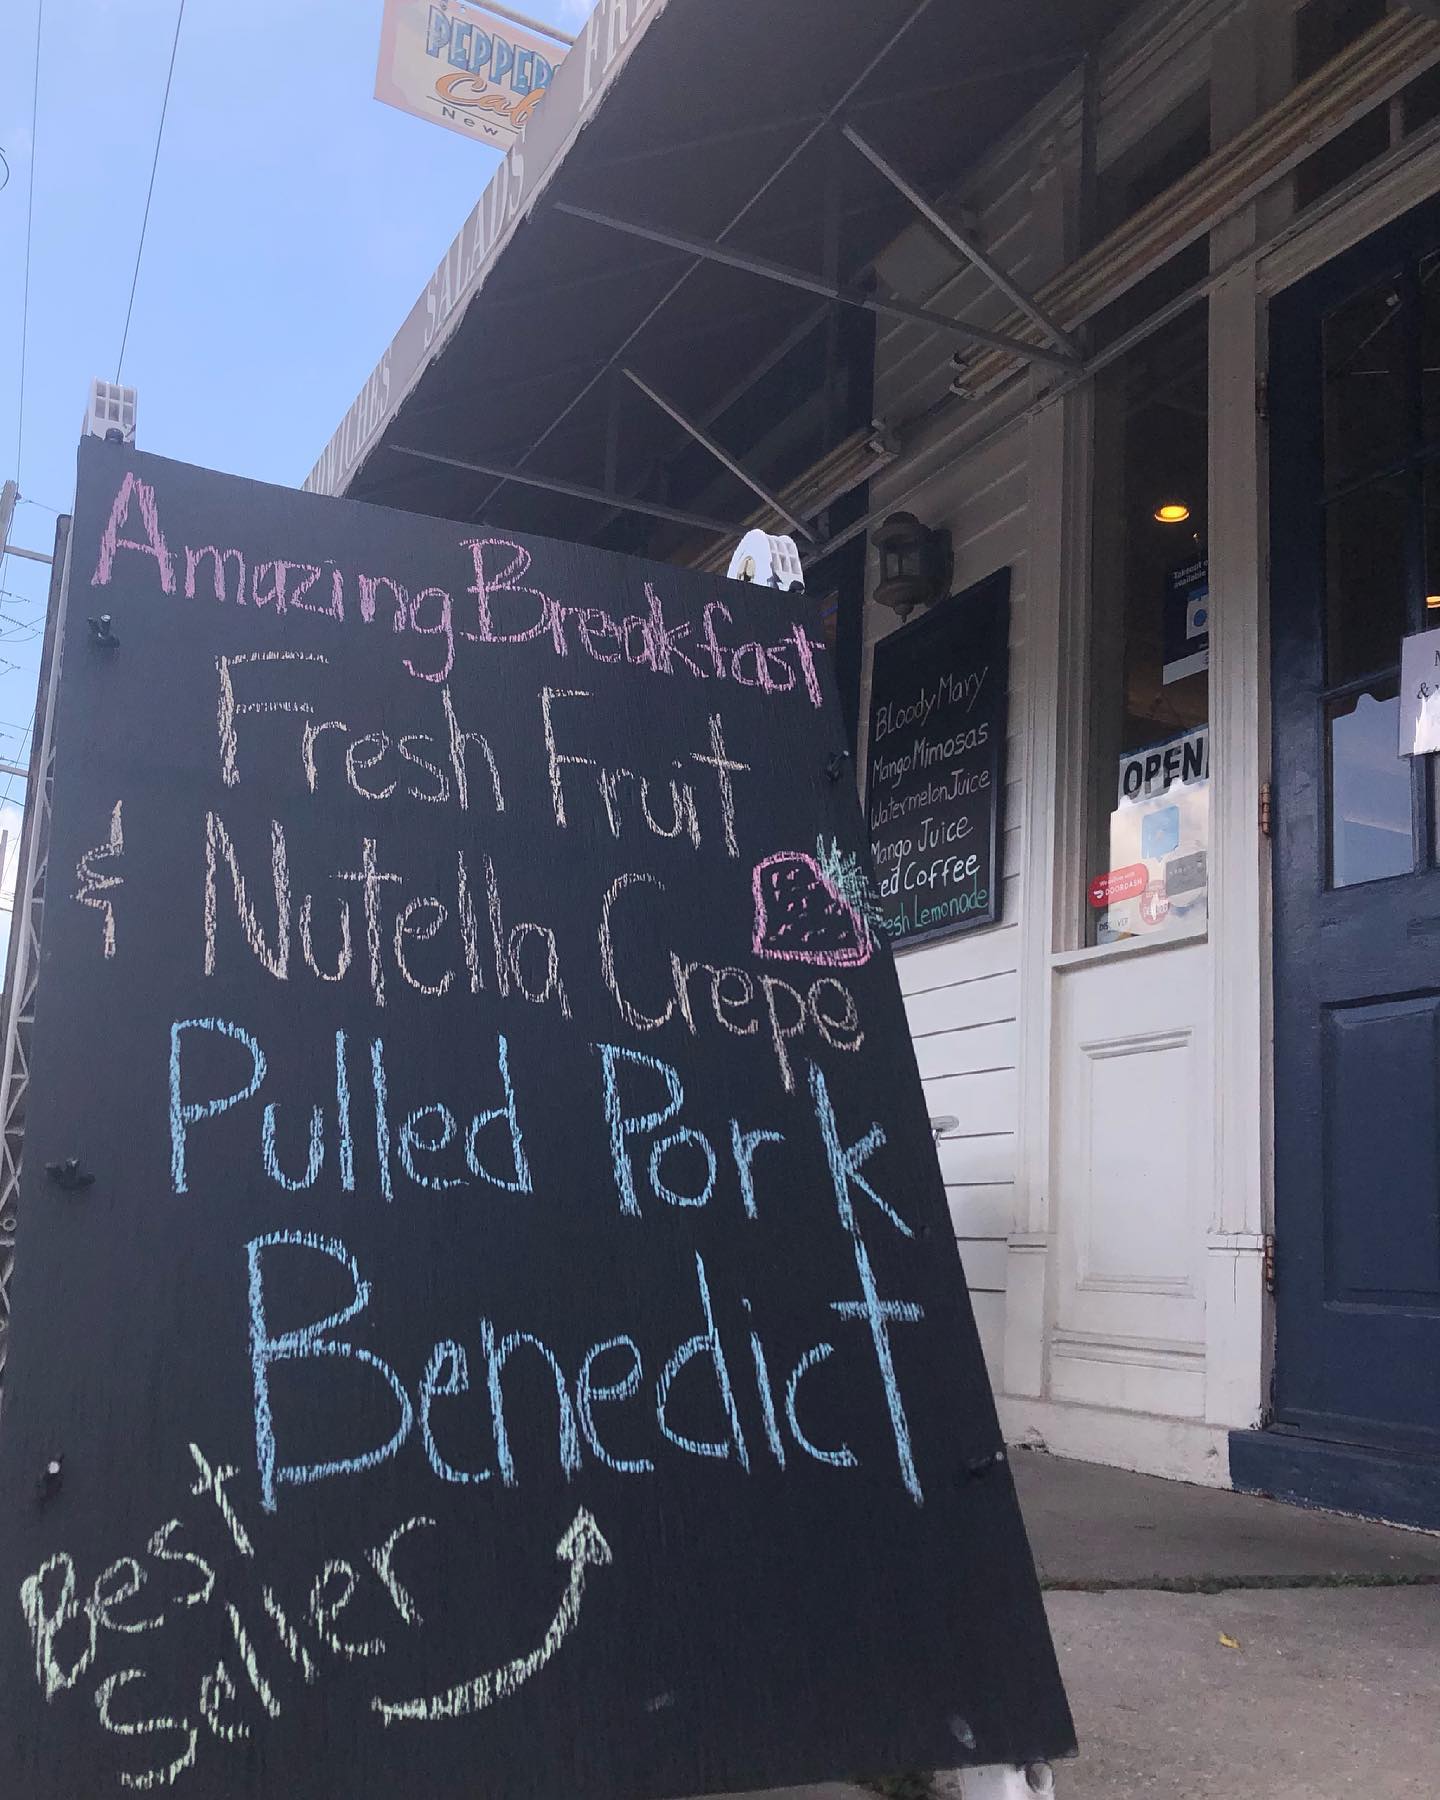 PEPPER
Cafe
New
SALADS
Amazing Breakfast
Fresh Fruit
& Nutella Crepe
Pulled Pork
Benedict
Best
Seller
Bloody Mary
Mango Mimosas
Watermelon Juice
Mango Juice
ed Coffee
esh Lemonade
Takeout
available
OPEN
DOORDASH
&